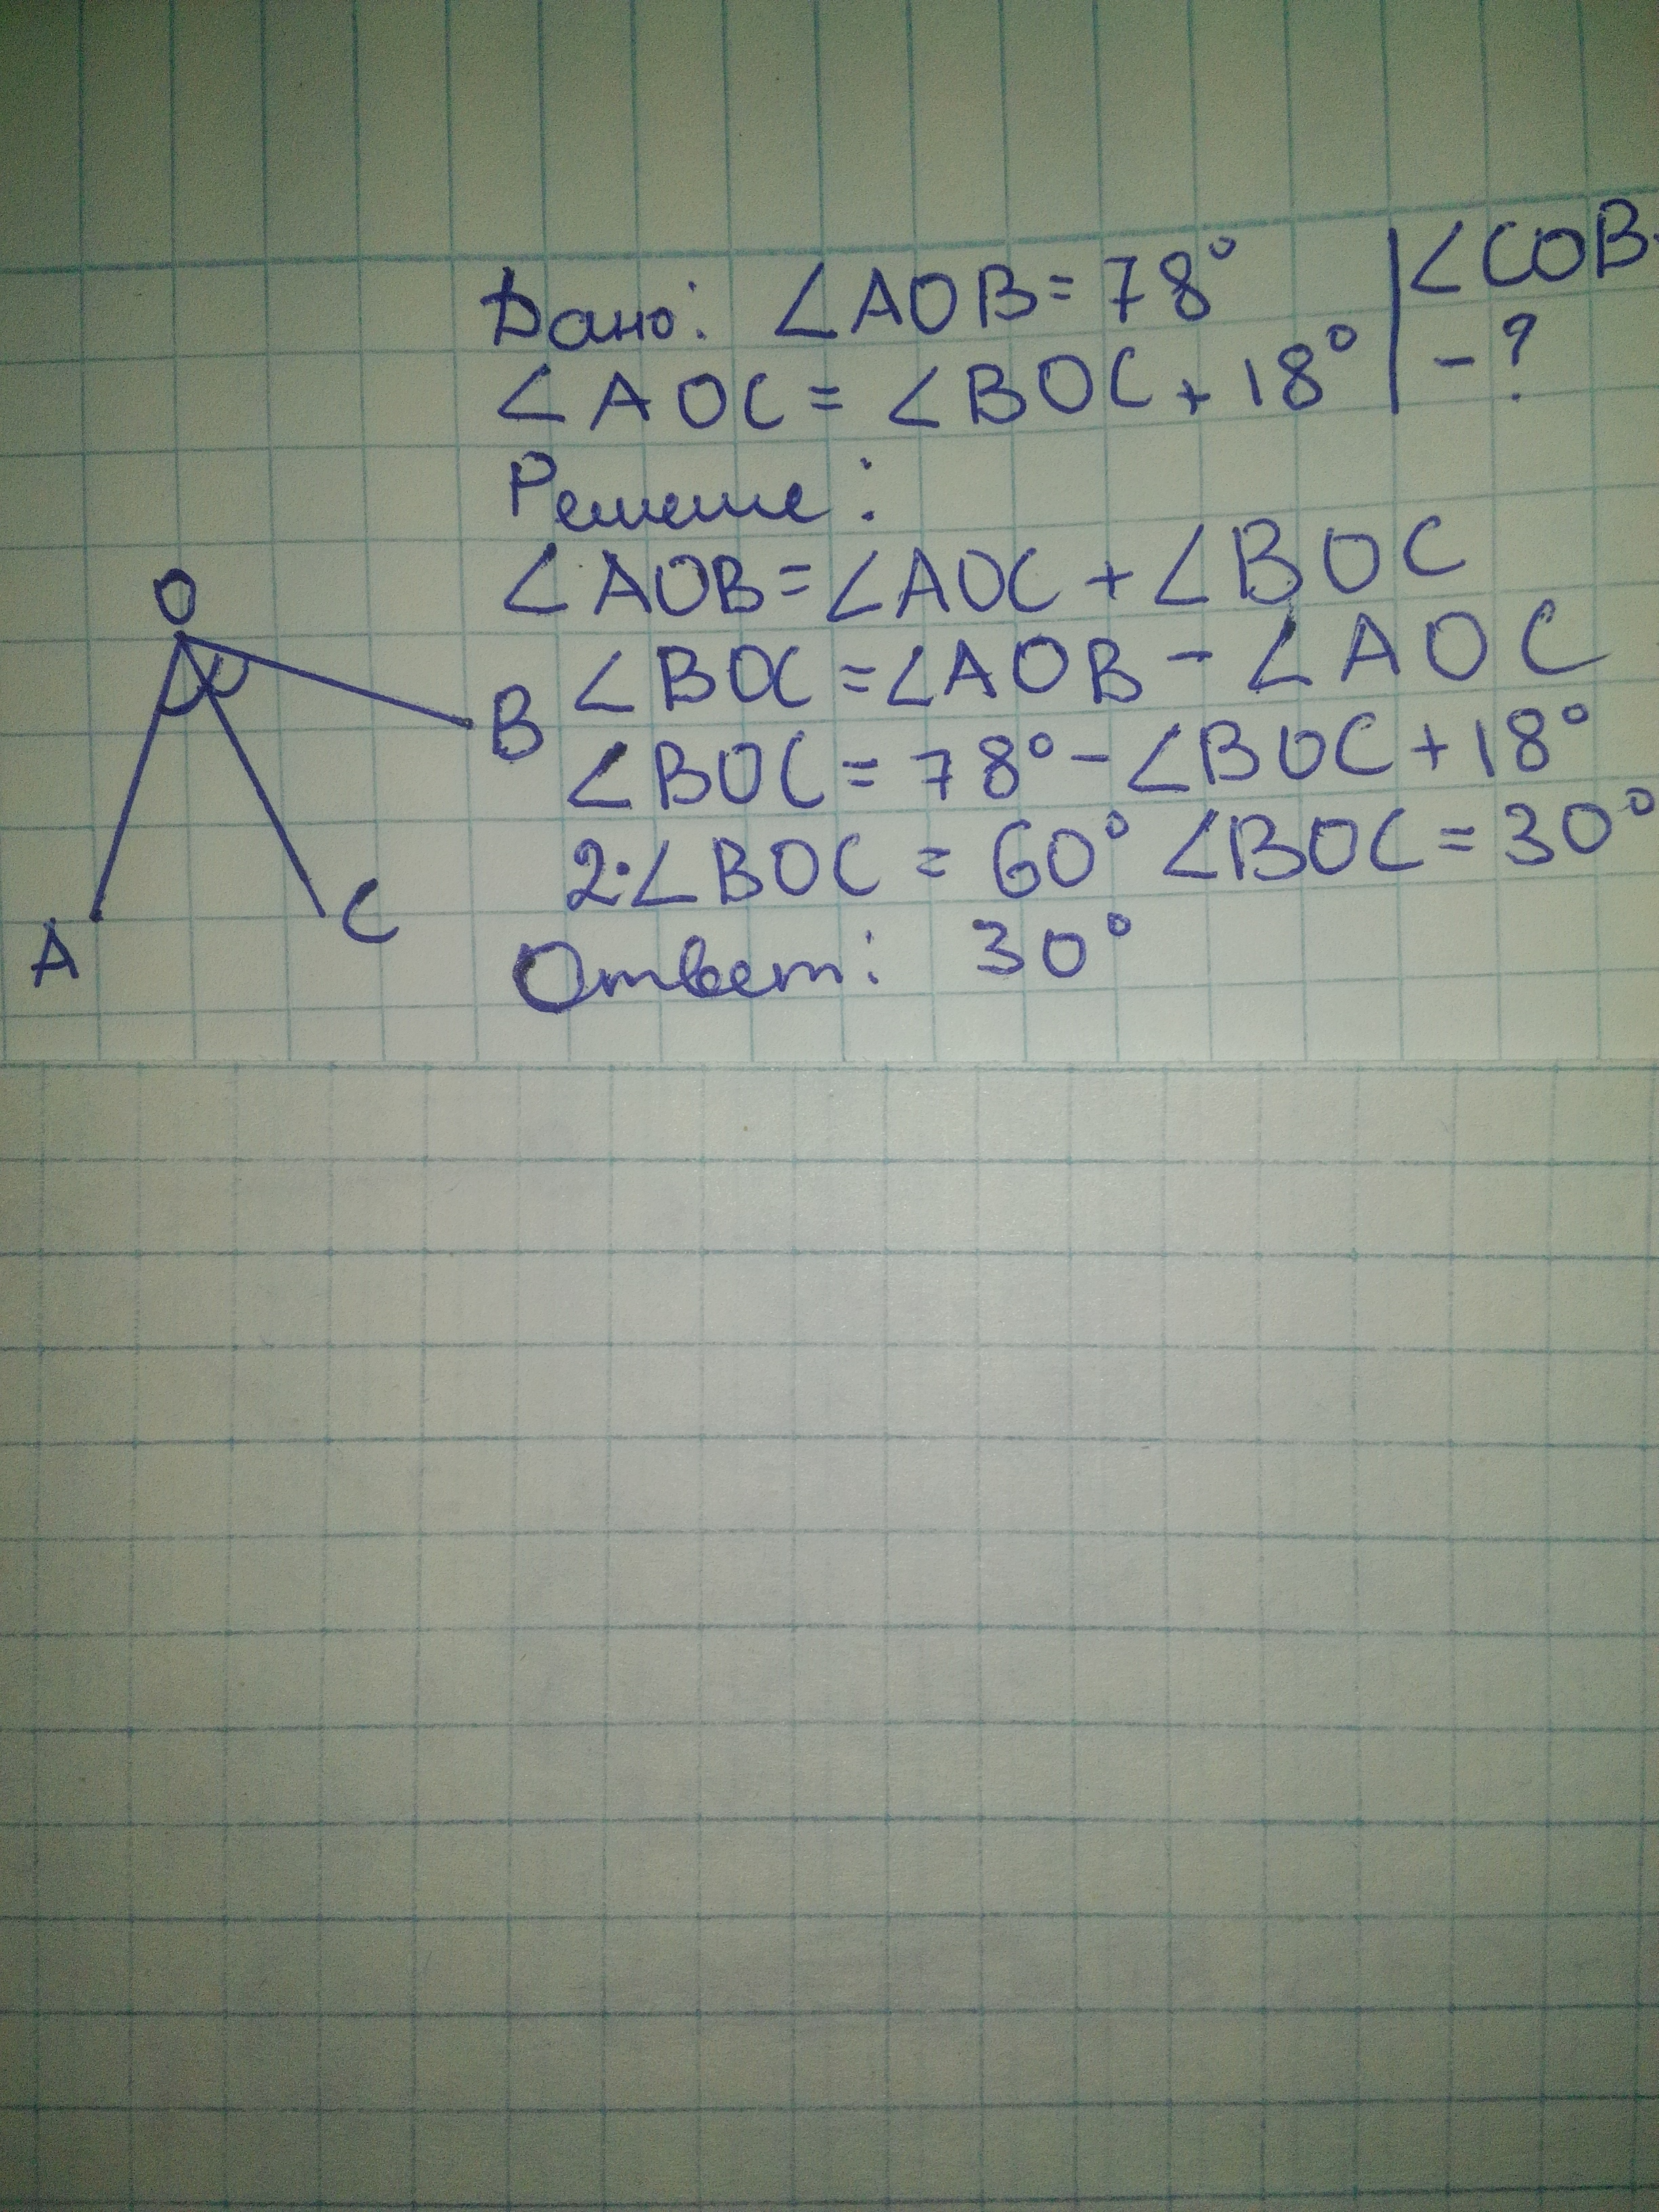 Дано: ∠AOB = 78° | ∠COB
∠AOC = ∠BOC + 18° | - ?
Решение:
∠AOB = ∠AOC + ∠BOC
O
∠BOC = ∠AOB - ∠AOC
B
∠BOC = 78° - ∠BOC + 18°
2·∠BOC = 60° ∠BOC = 30°
A C
Ответ: 30°